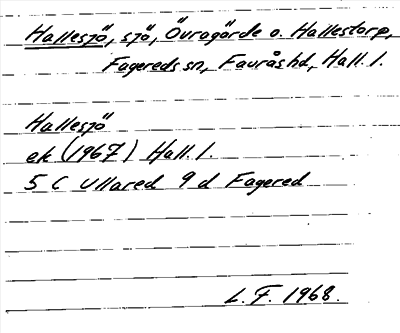 Hallesjö, sjö, Övragärde o. Hallestorp,
Fagereds sn, Faurås hd, Hall. l.
Hallesjö
ek (1967) Hall. l.
5 C Ullared 9 d Fagered
L. F. 1968.